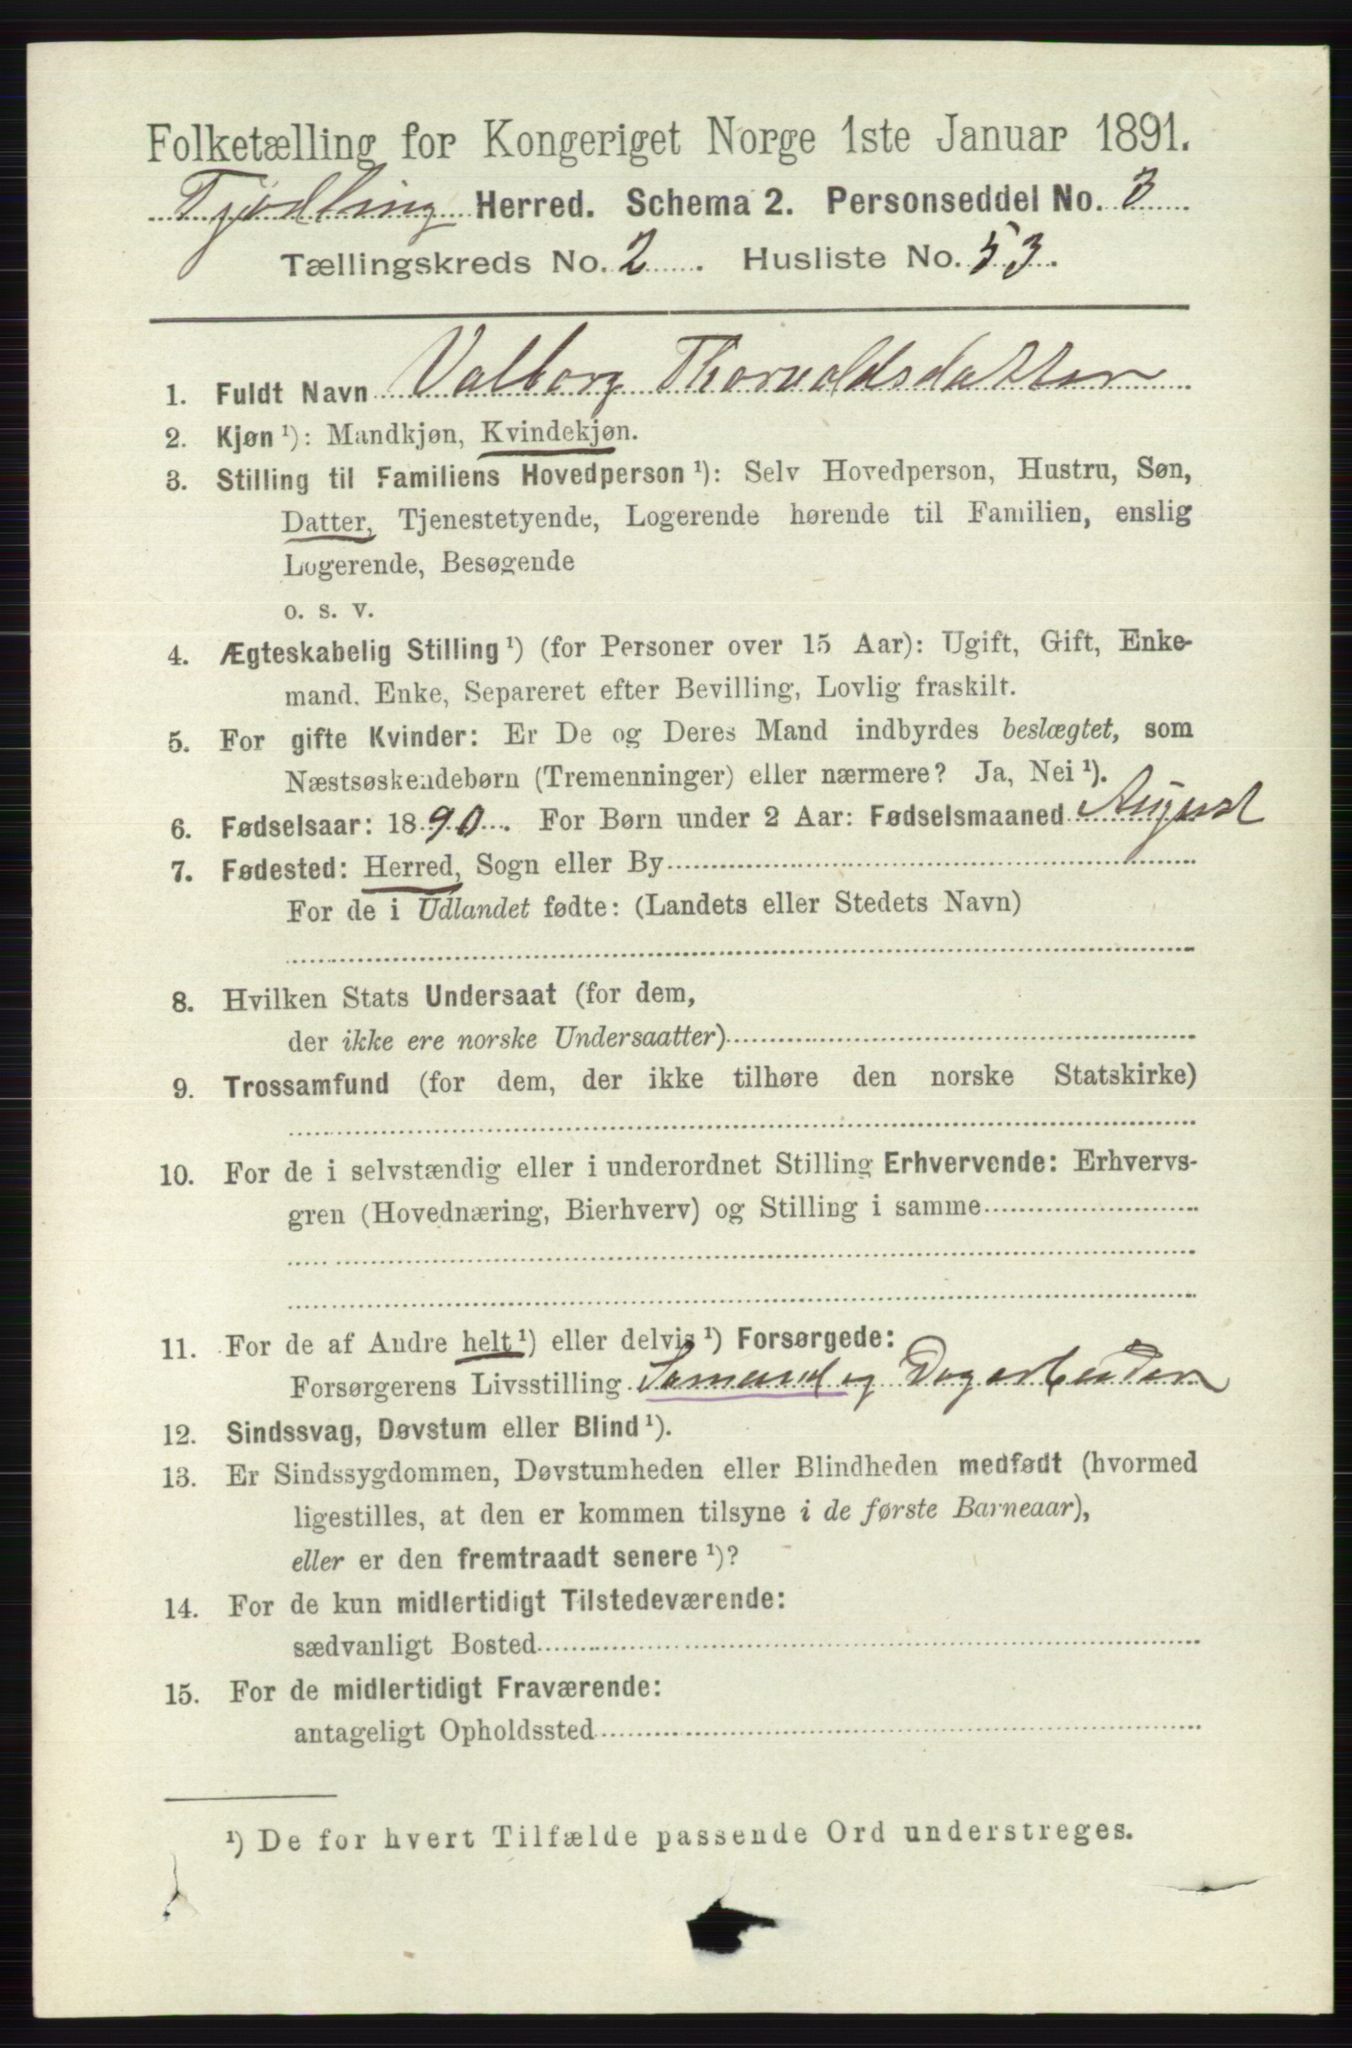 Folketælling for Kongeriget Norge 1ste Januar 1891.
Tjødling Herred. Schema 2. Personseddel No. 3
Tællingskreds No. 2. Husliste No. 53.
1. Fuldt Navn Valborg Thorvaldsdatter
2. Kjøn ¹): Mandkjøn, Kvindekjøn.
3. Stilling til Familiens Hovedperson ¹): Selv Hovedperson, Hustru, Søn,
Datter, Tjenestetyende, Logerende hørende til Familien, enslig
Logerende, Besøgende
o. s. v.
4. Ægteskabelig Stilling ¹) (for Personer over 15 Aar): Ugift, Gift, Enke-
mand, Enke, Separeret efter Bevilling, Lovlig fraskilt.
5. For gifte Kvinder: Er De og Deres Mand indbyrdes beslægtet, som
Næstsøskendebørn (Tremenninger) eller nærmere? Ja, Nei ¹).
6. Fødselsaar: 1890. For Børn under 2 Aar: Fødselsmaaned August
7. Fødested: Herred, Sogn eller By
For de i Udlandet fødte: (Landets eller Stedets Navn)
8. Hvilken Stats Undersaat (for dem,
der ikke ere norske Undersaatter)
9. Trossamfund (for dem, der ikke tilhøre den norske Statskirke)
10. For de i selvstændig eller i underordnet Stilling Erhvervende: Erhvervs-
gren (Hovednæring, Bierhverv) og Stilling i samme
11. For de af Andre helt ¹) eller delvis ¹) Forsørgede:
Forsørgerens Livsstilling Sømand og Dagarbeider
12. Sindssvag, Døvstum eller Blind ¹).
13. Er Sindssygdommen, Døvstumheden eller Blindheden medfødt (hvormed
ligestilles, at den er kommen tilsyne i de første Barneaar),
eller er den fremtraadt senere ¹)?
14. For de kun midlertidigt Tilstedeværende:
sædvanligt Bosted
15. For de midlertidigt Fraværende:
antageligt Opholdssted
¹) De for hvert Tilfælde passende Ord understreges.